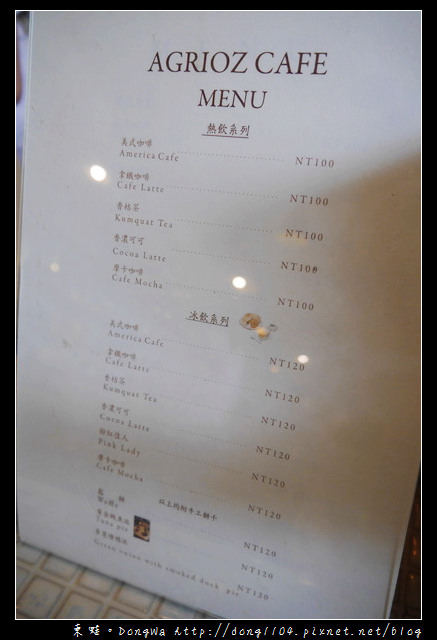 AGRIOZ CAFE
MENU
熱飲系列
美式咖啡
America Cafe NT100
拿鐵咖啡
Cafe Latte NT100
香桔茶
Kumquat Tea NT100
香濃可可
Cocoa Latte NT100
摩卡咖啡
Cafe Mocha NT100
冰飲系列
美式咖啡
America Cafe NT120
拿鐵咖啡
Cafe Latte NT120
香桔茶
Kumquat Tea NT120
香濃可可
Cocoa Latte NT120
粉紅佳人
Pink Lady NT120
摩卡咖啡
Cafe Mocha NT120
以上均附手工餅干
鬆餅
Waffle NT120
Tuna pie NT120
Green onion with smoked duck pie NT120
東蛙。DongWa http://dong1104.pixnet.net/blog